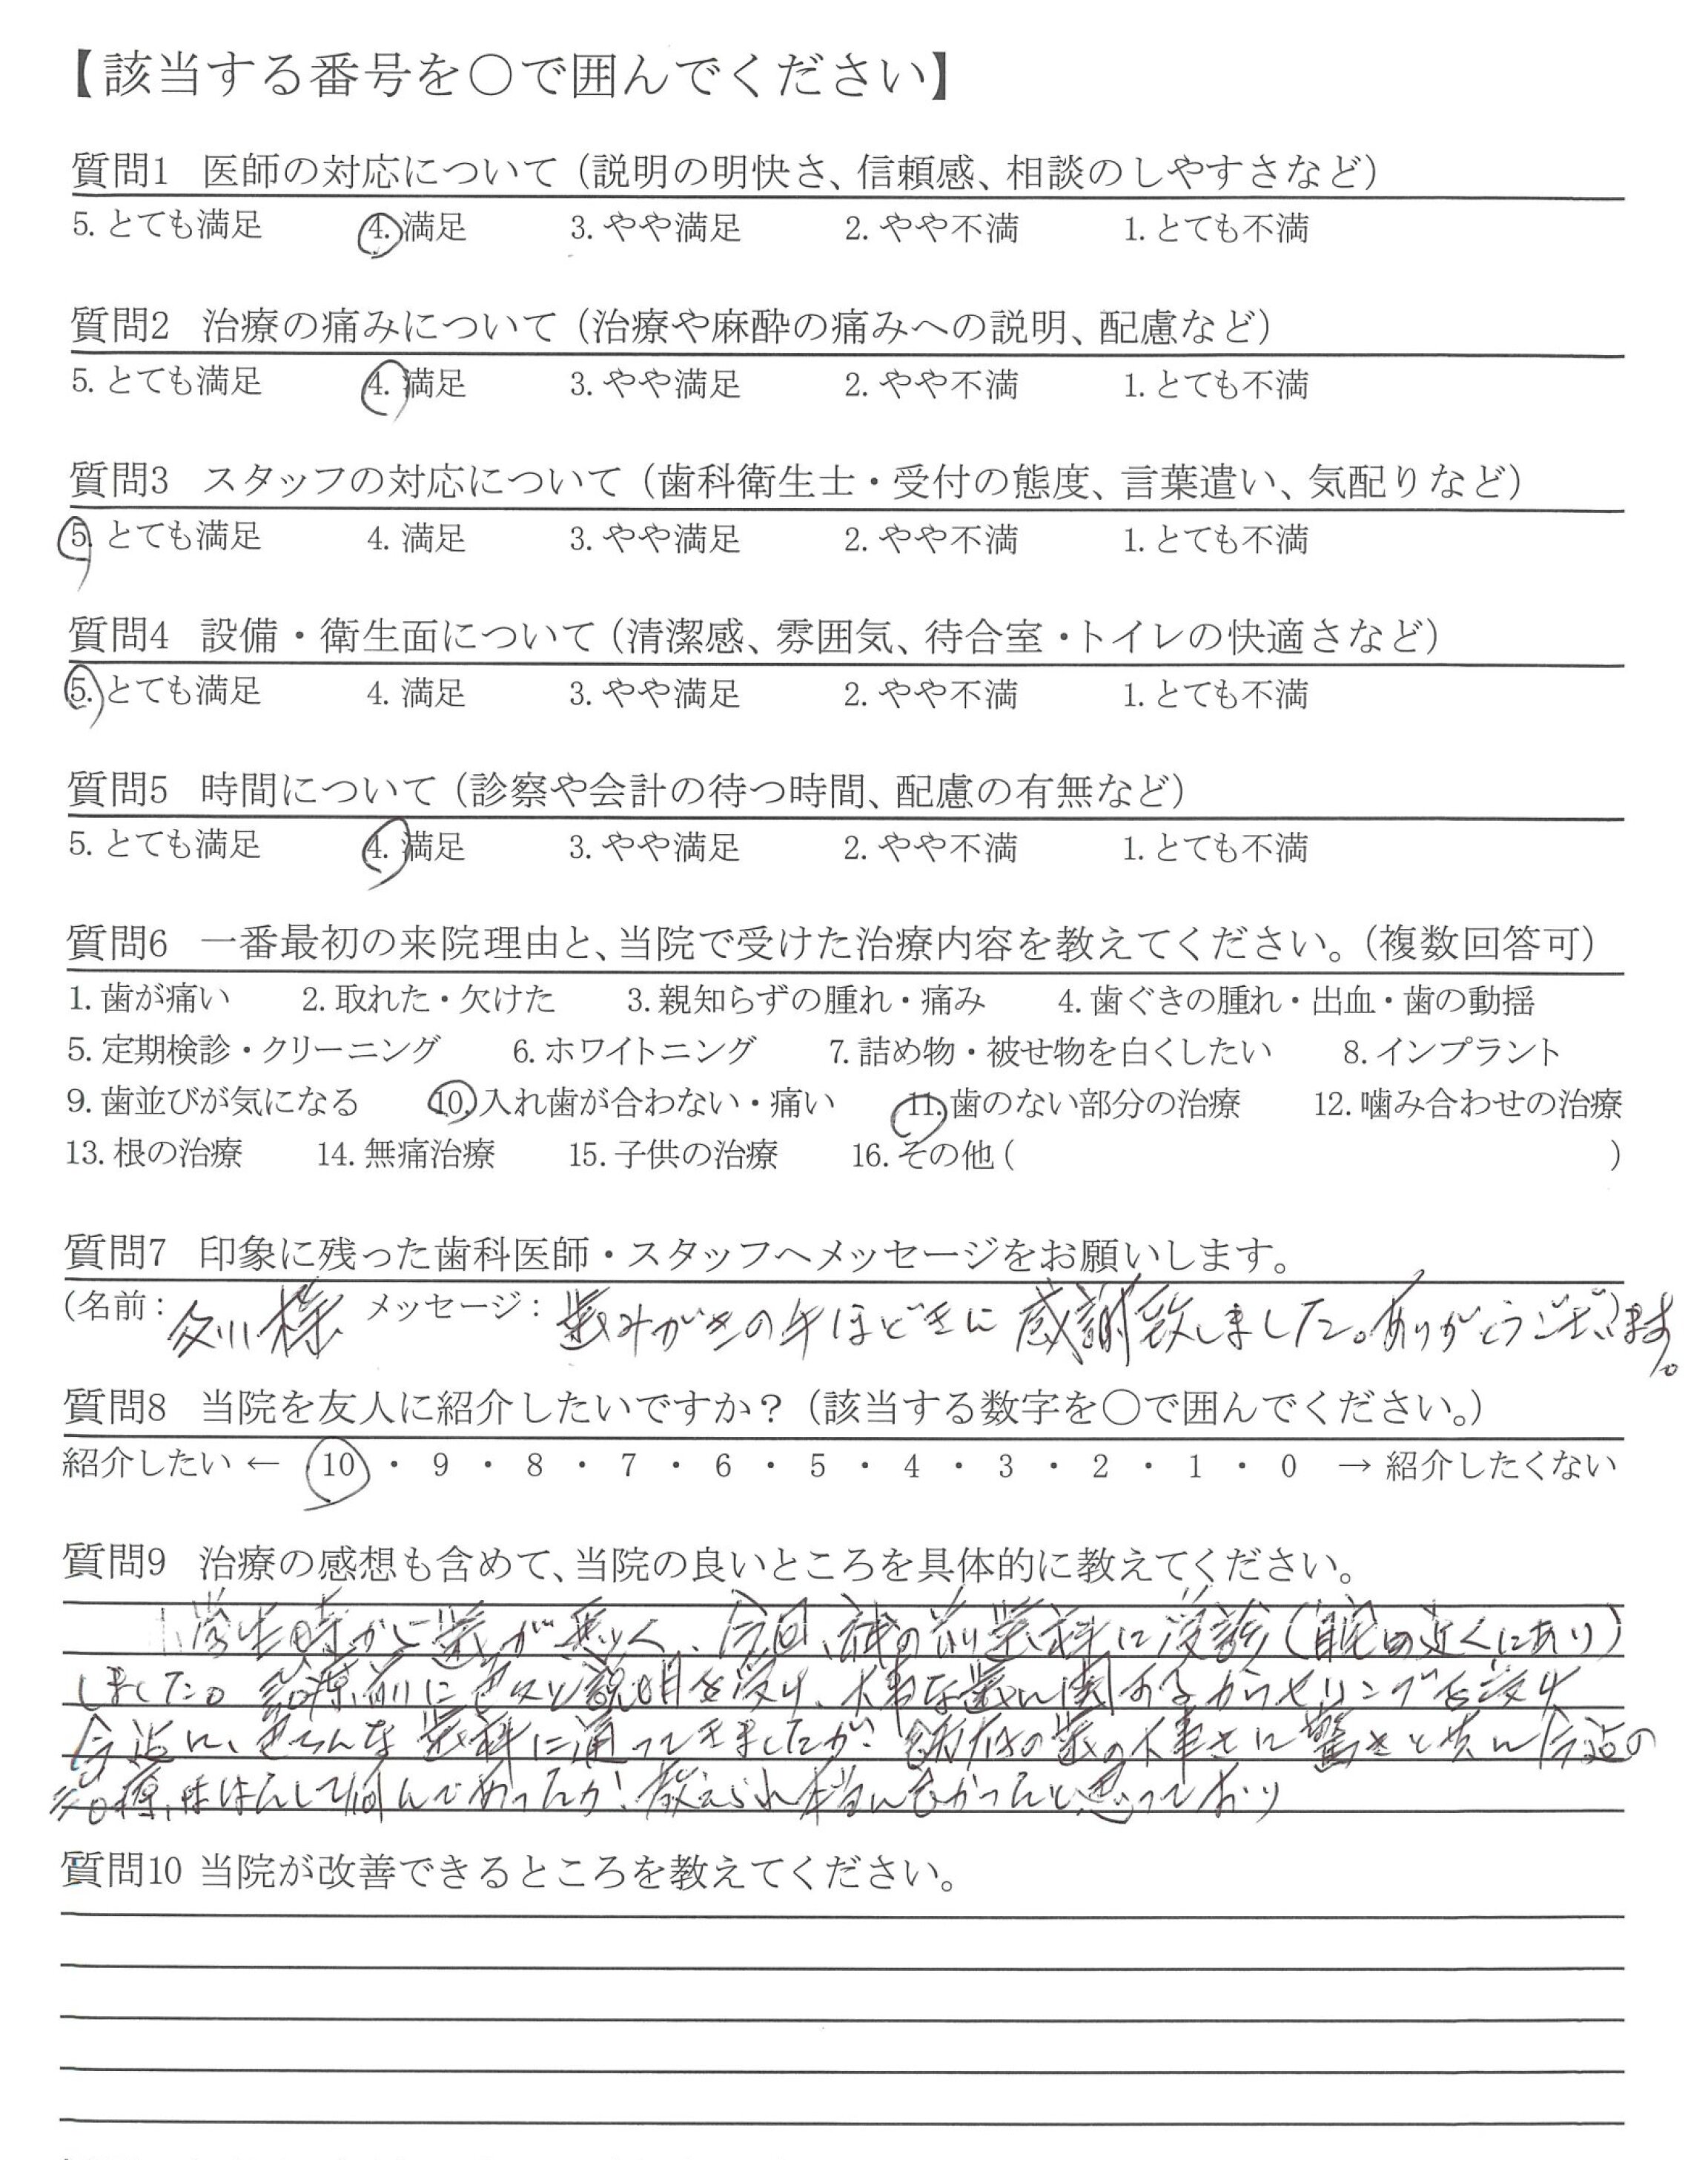 【該当する番号を○で囲んでください】
質問1 医師の対応について（説明の明快さ、信頼感、相談のしやすさなど）
5. とても満足 4. 満足 3. やや満足 2. やや不満 1. とても不満
質問2 治療の痛みについて（治療や麻酔の痛みへの説明、配慮など）
5. とても満足 4. 満足 3. やや満足 2. やや不満 1. とても不満
質問3 スタッフの対応について（歯科衛生士・受付の態度、言葉遣い、気配りなど）
5. とても満足 4. 満足 3. やや満足 2. やや不満 1. とても不満
質問4 設備・衛生面について（清潔感、雰囲気、待合室・トイレの快適さなど）
5. とても満足 4. 満足 3. やや満足 2. やや不満 1. とても不満
質問5 時間について（診察や会計の待つ時間、配慮の有無など）
5. とても満足 4. 満足 3. やや満足 2. やや不満 1. とても不満
質問6 一番最初の来院理由と、当院で受けた治療内容を教えてください。（複数回答可）
1. 歯が痛い 2. 取れた・欠けた 3. 親知らずの腫れ・痛み 4. 歯ぐきの腫れ・出血・歯の動揺
5. 定期検診・クリーニング 6. ホワイトニング 7. 詰め物・被せ物を白くしたい 8. インプラント
9. 歯並びが気になる 10. 入れ歯が合わない・痛い 11. 歯のない部分の治療 12. 噛み合わせの治療
13. 根の治療 14. 無痛治療 15. 子供の治療 16. その他（ ）
質問7 印象に残った歯科医師・スタッフへメッセージをお願いします。
（名前： 様 メッセージ： 歯みがきの手ほどきに感謝致しました。ありがとうございます。
質問8 当院を友人に紹介したいですか？（該当する数字を○で囲んでください。）
紹介したい ← 10 ・ 9 ・ 8 ・ 7 ・ 6 ・ 5 ・ 4 ・ 3 ・ 2 ・ 1 ・ 0 → 紹介したくない
質問9 治療の感想も含めて、当院の良いところを具体的に教えてください。
小学生時から歯が悪く、今回、 の前歯科に受診（自宅の近くにあり）
しました。治療前に色々と説明を受け、大事な歯に関するカウンセリングを受け
今迄に、色んな歯科に通ってきましたが、 の歯の大事さに驚きと共に今迄の
治療は で あったか！教えられ本当に良かったと思っており
質問10 当院が改善できるところを教えてください。